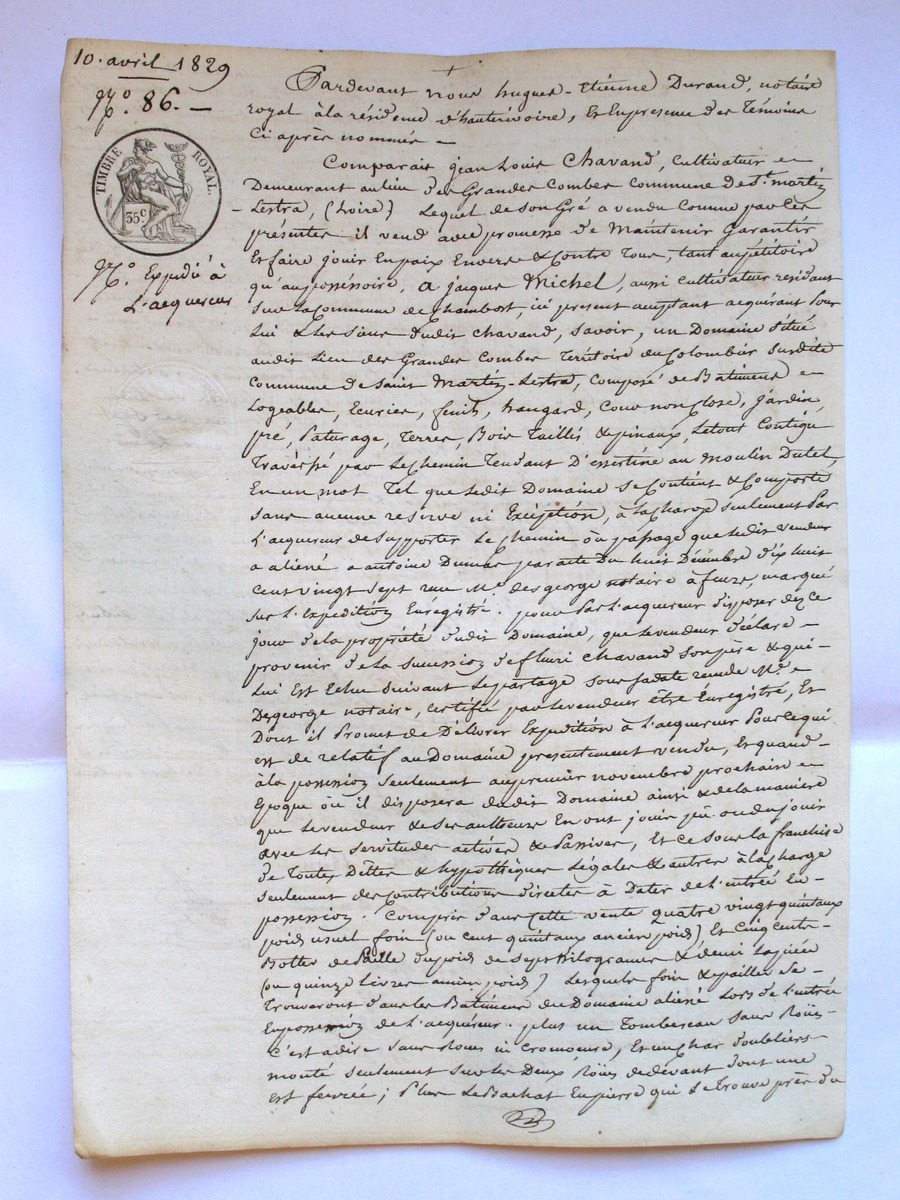 10. avril 1829
N.° 86. —
TIMBRE ROYAL.
35c.
N.° Expédié à
L'acquereur
Pardevant nous hugues-Etiènne Durand, notaire
royal à la résidence d'hauterivoire, Et en presence des Témoins
Ci après nommés =
Comparait jean Louis Chavand, Cultivateur =
Demeurant au lieu des Grandes Combes Commune de St. martin
Lestra, (Loire) Lequel de son Gré a vendu Comme par Ces
présentes il vend avec promesse de Maintenir Garantir
Et faire jouir En paix Envers & Contre Tous, tant au pétitoire
qu'au possessoire, a jacques Michel, aussi cultivateur residant
sur la Commune de Chambost, ici present acceptant acquerant Pour
Lui & Les siens dudit Chavand, Savoir, un Domaine situé
audit Lieu des Grandes Combes Territoire du Colombier Susdite
Commune de Saint Martin-Lestra, Composé de Batimens =
Logeables, Ecuries, fenils, hangard, Cour non Close, Jardin,
pré, Paturage, Terres, Bois Taillis & pinaux, Le tout Contigu
Traversé par Le Chemin Tendant D'essertine au Moulin Dutel,
En un mot Tel que Ledit Domaine Se Contient & Comporte
sans aucune reserve ni Exception, à la Charge seulement Par
L'acquereur de supporter Le Chemin ou passage que Ledit vendeur
a aliené a antoine Dumas par acte Du huit Décembre dix huit
cent vingt Sept reçu Me. desgeorge notaire à feurs, marqué
sur L'Expedition Enrégistré. pour Par L'acquereur disposer dès Ce
jour de la propriété dudit Domaine, que Le vendeur déclare —
provenir de la succession de fleuri Chavand Son père & qui —
Lui Est Echue suivant Le partage sous sa date reçu de Me. =
Desgeorge notaire, Certifié par Le vendeur être Enrégistré, Et
Dont il Promet de Délivrer Expédition à L'acquereur Pour Ce qui
est de relatif au Domaine présentement vendu, Et quand —
à la possession seulement au premier novembre prochain =
Epoque où il disposera dudit Domaine ainsi & de la manière
que Le vendeur & ses autheurs En ont joui pû ou du jouir
avec Les servitudes actives & Passives, Et Ce sous la franchise
de Toutes Dettes & hypothèques Légales & autres à la charge
seulement des Contributions directes à Dater de L'entrée En —
possession. Compris dans Cette vente quatre vingt quintaux
poids usuel foin (ou cent quintaux ancien poids) Et Cinq Cents —
Bottes de Paille du poids de Sept Kilogrammes & demi La piece
(ou quinze Livres ancien poids) Lesquels foin & pailles Se —
Trouveront dans Les Batimens du Domaine aliené Lors de L'entrée
En possession de L'acquéreur. plus un Tombereau Sans Roues
C'est a dire sans Roues ni, Et un Char doubliers
monté seulement sur Les Deux Roües de devant dont une
est ferrée; Plus Le Bachat En pierre qui Se trouve près du